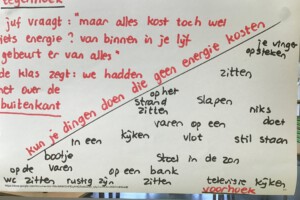 tegenhoek
juf vraagt: "maar alles kost toch wel
iets energie? van binnen in je lijf
gebeurt er van alles"
de klas zegt: we hadden
het over de
buitenkant
kun je dingen doen die geen energie kosten
je vinger
opsteken
zitten
op het
strand
zitten
slapen
niks
doet
varen op een
vlot
stil staan
in een
bootje
varen
kijken
stoel in de zon
op de
wc zitten
rustig zijn
op een bank
zitten
televisie kijken
voorhoek